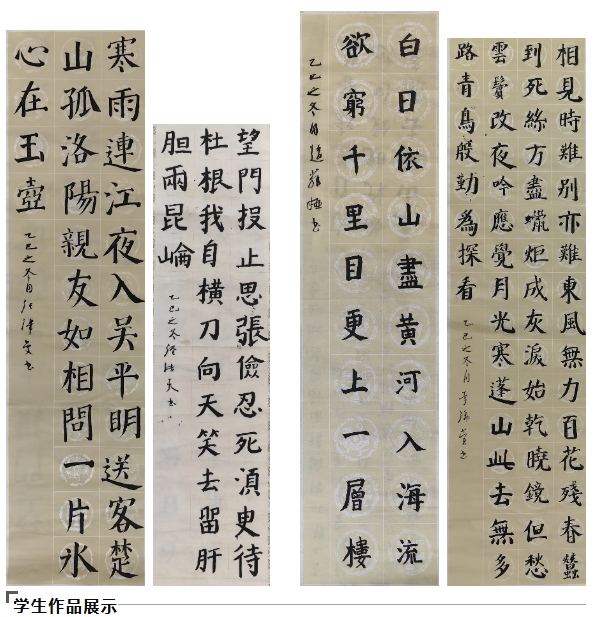 寒雨連江夜入吴平明送客楚
山孤洛陽親友如相問一片氷
心在玉壺
乙巳之冬月
望門投止思張儉忍死湏臾待
杜根我自橫刀向天笑去留肝
胆兩昆崘
乙巳之冬
白日依山盡黄河入海流
欲窮千里目更上一層樓
乙巳之冬月
相見時難別亦難東風無力百花殘春蠶
到死絲方盡蠟炬成灰淚始乾曉鏡但愁
雲鬢改夜吟應覺月光寒蓬山此去無多
路青鳥殷勤為探看
乙巳之冬月
学生作品展示